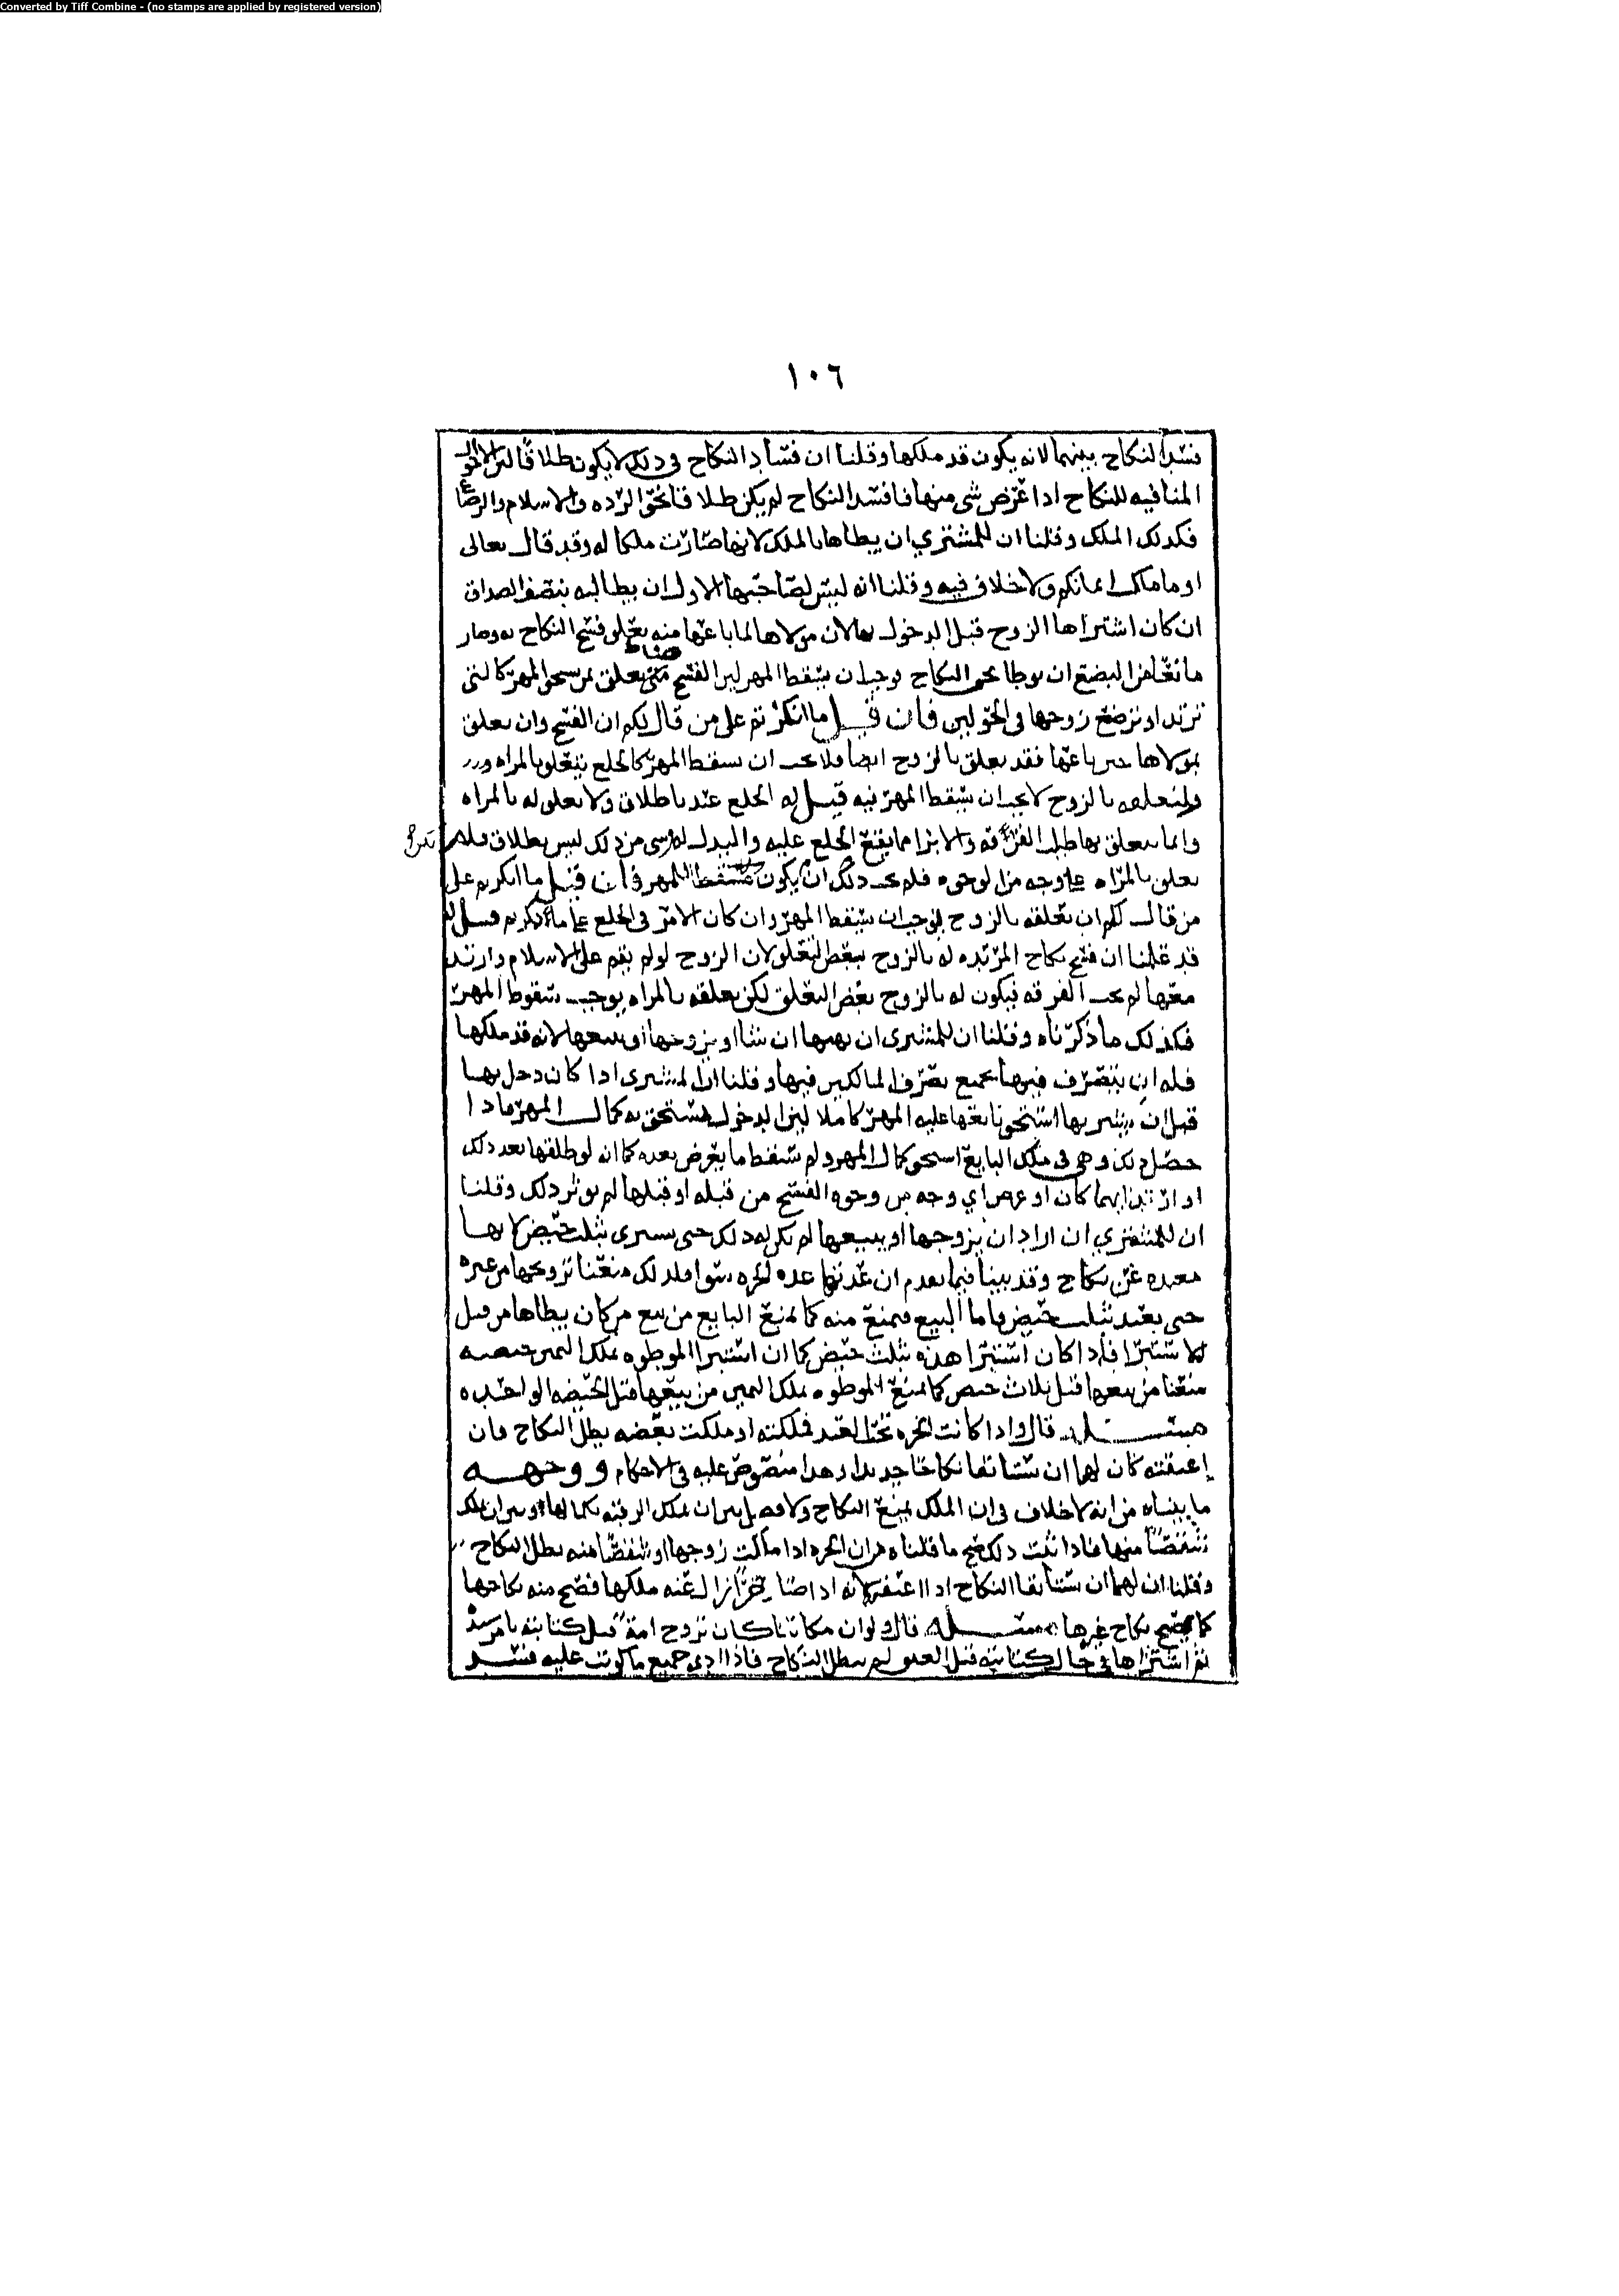 Converted by Tiff Combine - (no stamps are applied by registered version)
١٠٦
فسد النكاح بينهما لانه يكون قد ملكها وقلنا ان فساد النكاح في ذلك لا يكون طلاقا لان الامور
المنافيه للنكاح اذا عرض شي منها فافسد النكاح لم يكن طلاقا نحو الرده والاسلام والرضاع
فكذلك الملك وقلنا ان للمشتري ان يطاها بالملك لانها صارت ملكا له وقد قال تعالى
او ما ملكت ايمانكم ولا خلاف فيه وقلنا انه ليس لصاحبها الاول ان يطالبه بنصف الصداق
ان كان اشتراها الزوج قبل الدخول بها لان مولاها لما باعها منه تعلق فسخ النكاح به وصار
مانعا من البضع ان يوطا بحق النكاح فوجب ان يسقط المهر لان الفسخ متى تعلق بمن يستحق المهر كالتي
ترتد او ترضع زوجها في الحولين فان قيل ما انكرتم على من قال لكم ان الفسخ وان تعلق
بمولاها حين باعها فقد تعلق بالزوج ايضا فلا يجب ان يسقط المهر كالخلع يتعلق بالمراه و
ولتعلقه بالزوج لا يجب ان يسقط المهر فيه قيل له الخلع عندنا طلاق ولا تعلق له بالمراه
وانما يتعلق بها طلب الفرقه والابرا مما يقع الخلع عليه والبدل له وشي من ذلك ليس بطلاق فلم
تعلق بالمراه على وجه من الوجوه فلم يجب ذلك ان يكون مسقطا للمهر فان قيل ما انكرتم على
من قال لكم ان تعلقه بالزوج يوجب ان يسقط المهر وان كان الامر في الخلع على ما ذكرتم قيل له
قد علمنا ان فسخ نكاح المرتده له بالزوج بعض التعلق لان الزوج لو لم يقم على الاسلام وارتد
معها لم تجب الفرقه فيكون له بالزوج بعض التعلق لكن تعلقه بالمراه يوجب سقوط المهر
فكذلك ما ذكرناه وقلنا ان للمشتري ان يهبها ان شا او يزوجها او يبيعها لانه قد ملكها
فله ان يتصرف فيها بجميع تصرف المالكين فيها وقلنا ان المشتري اذا كان دخل بها
قبل ان يشتريها استحق بايعها عليه المهر كاملا لان الدخول يستحق به كمال المهر فاذا
حصل ذلك وهي في ملك البايع استحق كمال المهر ولم يسقط ما يعرض بعده كما انه لو طلقها بعد ذلك
او ارتد ايهما كان او عرض اي وجه من وجوه الفسخ من قبله او قبلها لم يوثر ذلك وقلنا
ان للمشتري ان اراد ان يزوجها او يبيعها لم يكن له ذلك حتى يستبري بثلث حيض لانها
معتده عن نكاح وقد بينا فيما تقدم ان عدتها عده الحره سوا فلذلك منعنا تزويجها من غيره
حتى تعتد بثلث حيض فاما البيع فيمنع منه كما يمنع البايع من بيع من كان يطاها من قبل
الاستبرا فاذا كان استبرا هذه بثلث حيض كما ان استبرا الموطوه بملك اليمين حيضه
منعنا من بيعها قبل ثلاث حيض كما يمنع الموطوه بملك اليمين من بيعها قبل الحيضه الواحده
مسئله قال واذا كانت الحره تحت العبد فملكته او ملكت بعضه بطل النكاح فان
اعتقته كان لهما ان يستانفا نكاحا جديدا وهذا منصوص عليه في الاحكام ووجهه
ما بيناه من انه لا خلاف في ان الملك يمنع النكاح ولا فصل بين ان يملك الرقبه بكمالها او بين ان يملك
شقصا منها فاذا ثبت ذلك صح ما قلناه من ان الحره اذا ملكت زوجها او شقصا منه بطل النكاح
وقلنا ان لهما ان يستانفا النكاح اذا اعتقته لانه اذا صار حرا زال عنه ملكها فصح منه نكاحها
كما يصح نكاح غيرها مسئله قال ولو ان مكاتبا كان تزوج امة قبل كتابته بامر سيده
ثم اشتراها في حال كتابته قبل العتق لم يبطل النكاح فاذا ادى جميع ما كوتب عليه فسد